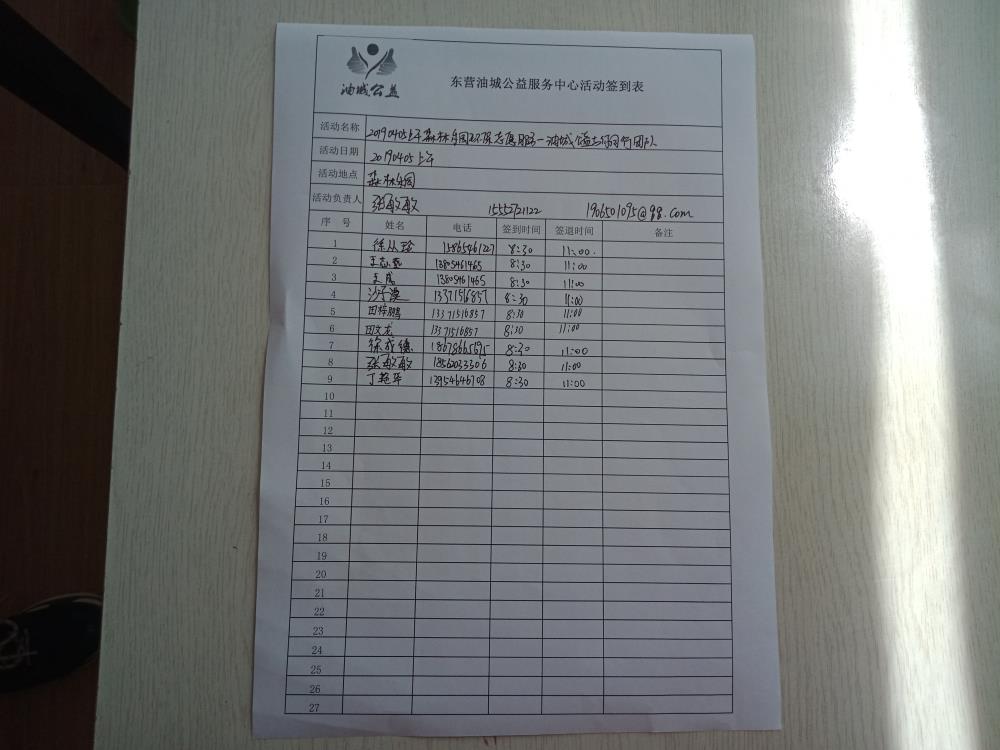 油城公益
东营油城公益服务中心活动签到表
活动名称 20190405上午森林乐园环保志愿服务—油城公益志愿团队
活动日期 20190405上午
活动地点 森林乐园
活动负责人 张敏敏 15552721122 1906501095@qq.com
序 号 姓名 电话 签到时间 签退时间 备注
1 徐从珍 15865461227 8:30 11:00.
2 王志 13805461465 8:30 11:00
3 王 13805461465 8:30 11:00
4 沙子漠 13371516857 8:30 11:00
5 田梓鹏 13371516857 8:30 11:00
6 田文龙 13371516857 8:30 11:00
7 徐成德 18678665595 8:30 11:00
8 张敏敏 18562033306 8:30 11:00
9 丁艳华 13954646708 8:30 11:00
10
11
12
13
14
15
16
17
18
19
20
21
22
23
24
25
26
27